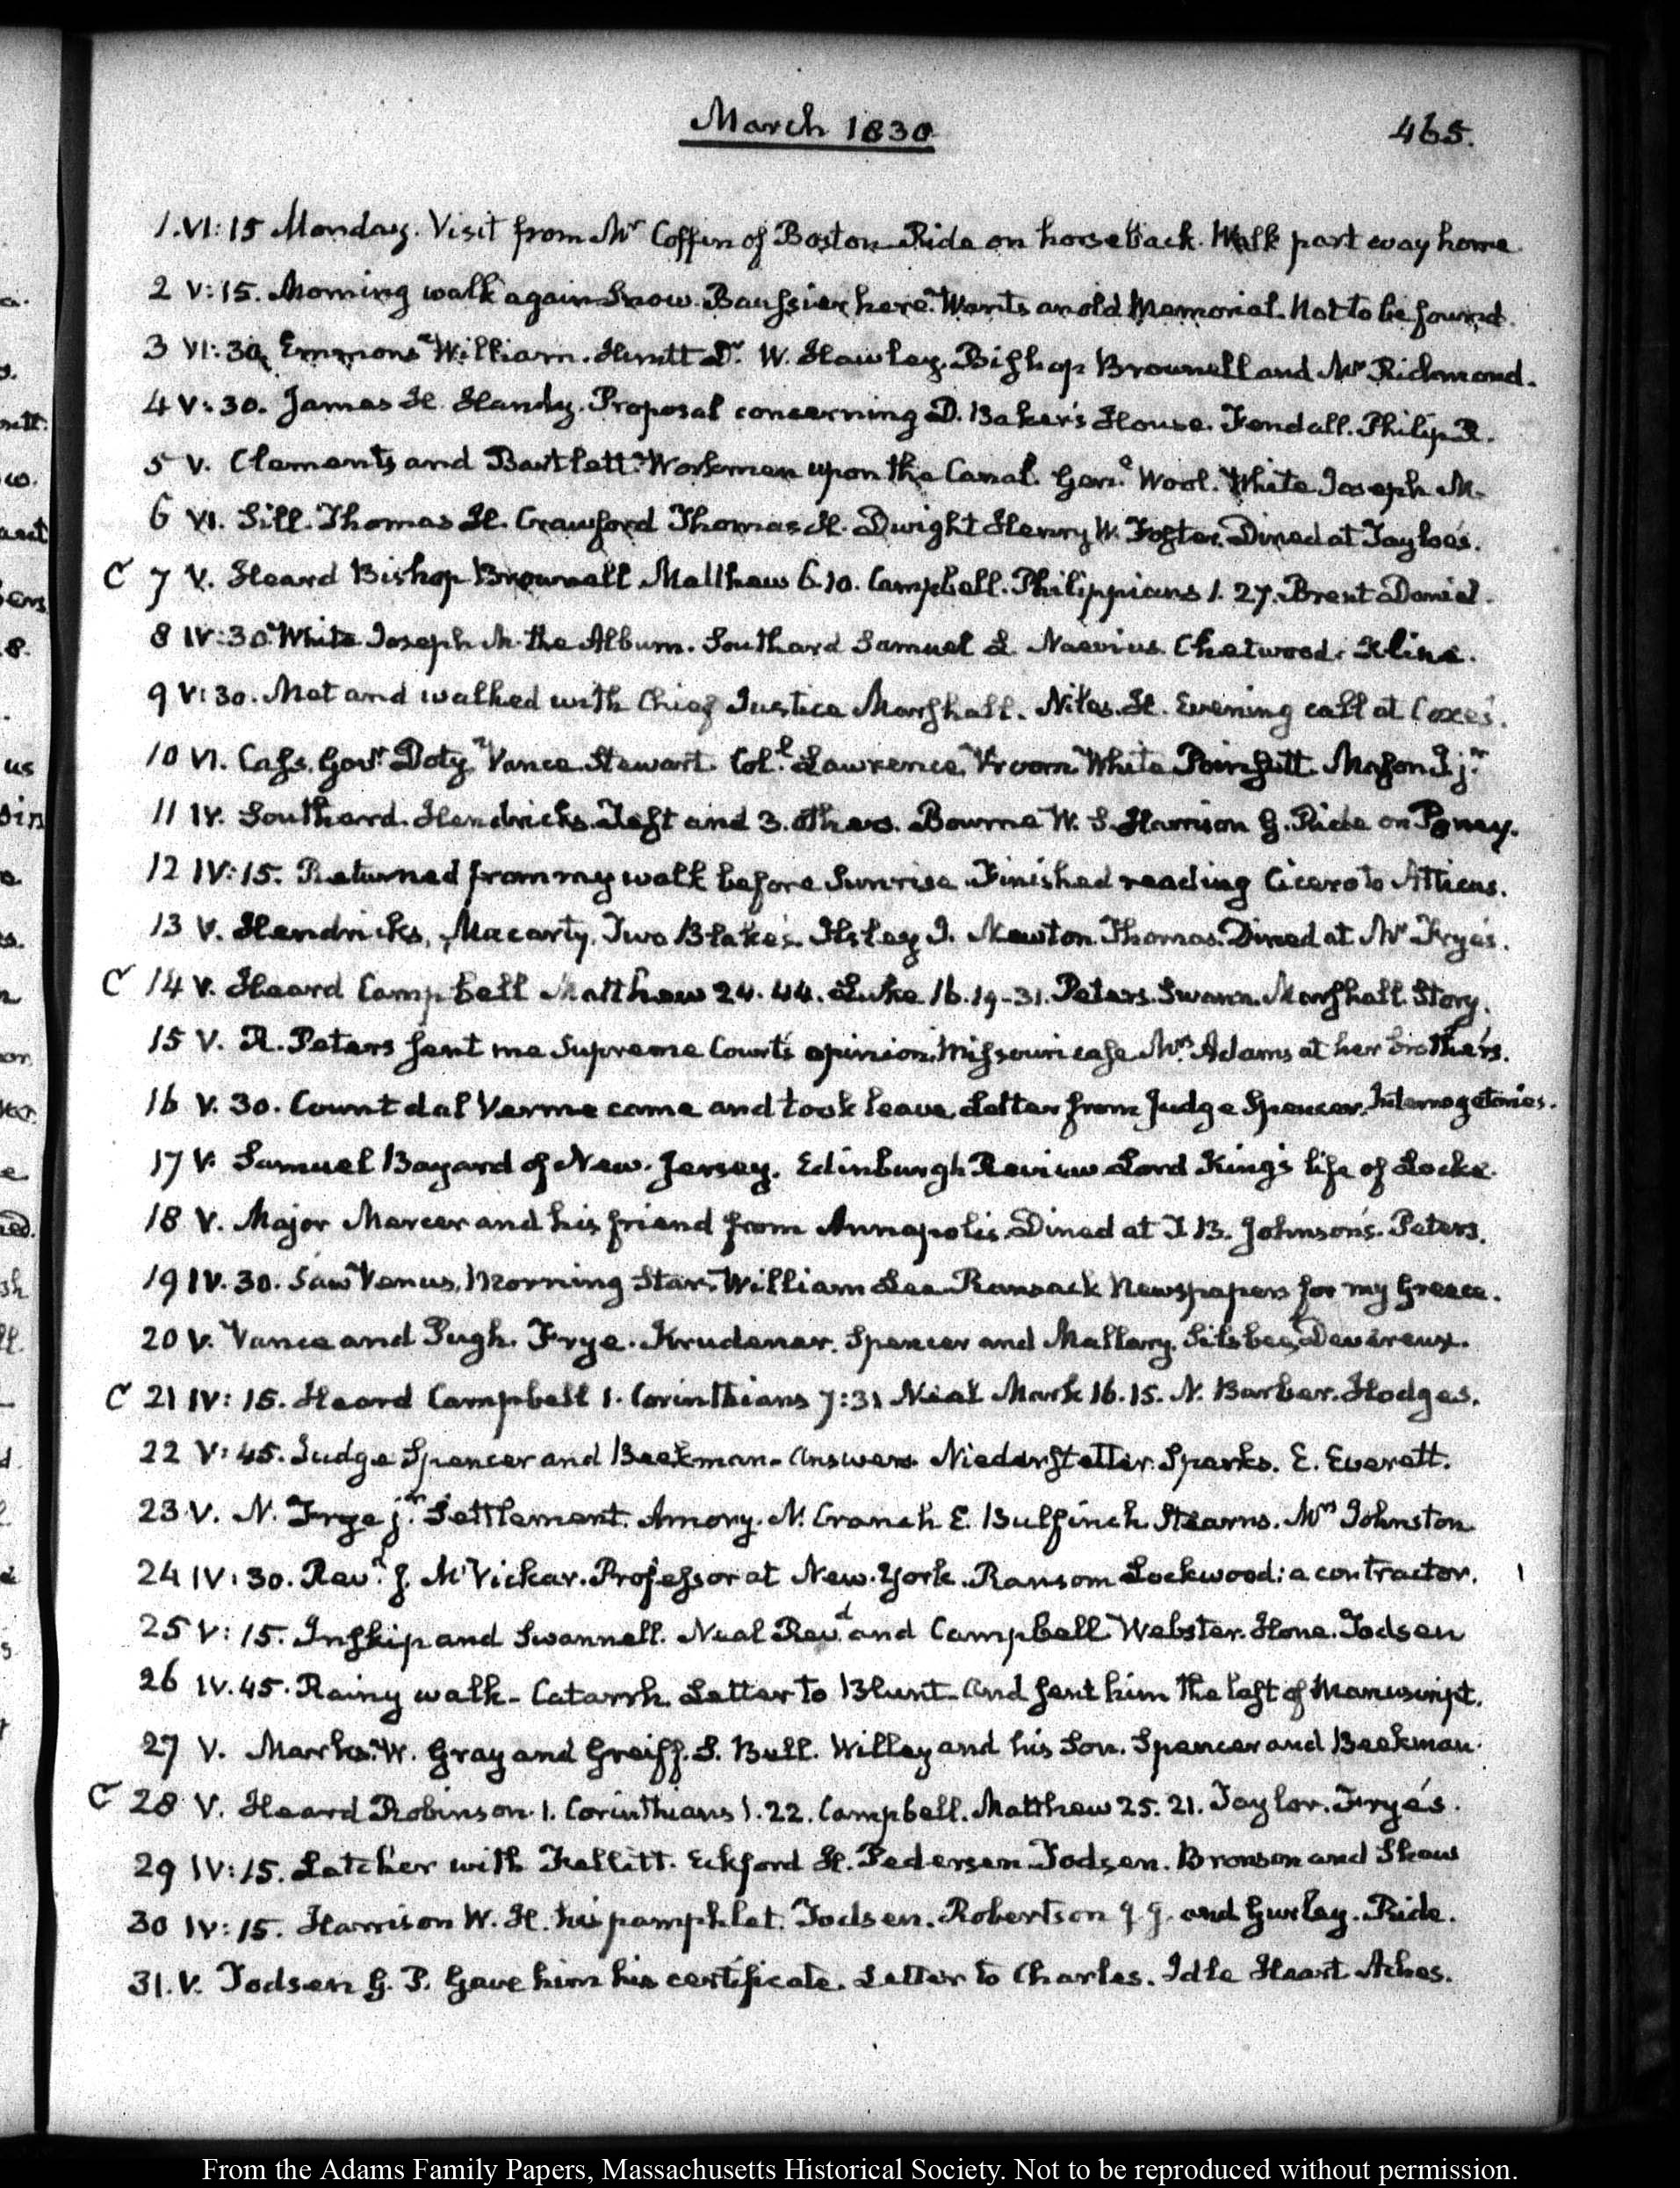 March 1830
465.
1. VI:15 Monday. Visit from Mr Coffin of Boston. Ride on horseback. Walk part way home
2 V:15. Morning walk again. Snow. Baussier here. Wants an old Memorial. Not to be found.
3 VI:30. Emmons William. Huntt Dr. W. Hawley. Bishop Brownell and Mr Richmond.
4 V:30. James H. Handy. Proposal concerning D. Baker's House. Fendall. Philip R.
5 V. Clements and Bartlett. Workmen upon the Canal. Genl. Wool. White Joseph M.
6 VI. Sill. Thomas H. Crawford Thomas H. Dwight Henry W. Foster. Dined at Tayloe's.
C 7 V. Heard Bishop Brownell Matthew 6.10. Campbell. Philippians 1. 27. Brent Daniel.
8 IV:30. White Joseph M. the Album. Southard Samuel L. Naevius. Chetwood. Kline.
9 V:30. Met and walked with Chief Justice Marshall. Niles. H. Evening call at Coxe's.
10 VI. Cass, Govr. Doty, Vance. Stewart. Coll. Lawrence, Vroom White Poinsett. Mason J. jr.
11 IV. Southard. Hendricks. Taft and 3. others. Bourne W. S. Harrison G. Ride on Poney.
12 IV:15. Returned from my walk before Sunrise. Finished reading Cicero to Atticus.
13 V. Hendricks, Macarty. Two Blake's. Ilsley I. Newton Thomas. Dined at Mr Frye's.
C 14 V. Heard Campbell Matthew 24. 44. Luke 16. 19-31. Peters. Swann. Marshall. Story.
15 V. R. Peters sent me Supreme Court's opinion. Missouri case Mrs. Adams at her brother's.
16 V. 30. Count dal Verme came and took leave. Letter from Judge Spencer. Interrogatories.
17 V. Samuel Bayard of New-Jersey. Edinburgh Review. Lord King's life of Locke.
18 V. Major Mercer and his friend from Annapolis. Dined at J. B. Johnson's. Peters.
19 IV. 30. Saw Venus, Morning Star. William Lee. Ransack Newspapers for my Greece.
20 V. Vance and Pugh. Frye. Krudener. Spencer and Mallary. Silsbee, Devereux.
C 21 IV:15. Heard Campbell 1. Corinthians 7:31 Neal Mark 16. 15. N. Barber. Hodges.
22 V:45. Judge Spencer and Beekman. Answers. Niederstetter. Sparks. E. Everett.
23 V. N. Frye jr. Settlement. Amory. N. Cranch E. Bulfinch. Stearns. Mrs Johnston
24 IV:30. Revd. J. McVickar. Professor at New-York. Ransom Lockwood: a contractor.
25 V:15. Inskip and Swannell. Neal Revd. and Campbell Webster. Hone. Todsen
26 IV.45. Rainy walk- Catarrh. Letter to Blunt- and sent him the last of Manuscript.
27 V. Marks. W. Gray and Greiff. S. Bell. Willey and his Son. Spencer and Beekman.
C 28 V. Heard Robinson. 1. Corinthians 1. 22. Campbell. Matthew 25. 21. Taylor. Frye's.
29 IV:15. Letcher with Eckford H. Pedersen. Todsen. Bronson and Shaw
30 IV:15. Harrison W. H. his pamphlet. Todsen. Robertson and Gurley. Ride.
31. V. Todsen G. P. Gave him his certificate. Letter to Charles. Idle Heart Aches.
From the Adams Family Papers, Massachusetts Historical Society. Not to be reproduced without permission.